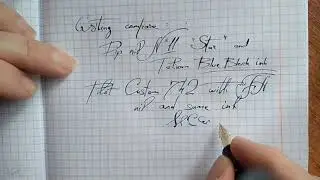 Writing comparison :
Dip nib № 11 "Star" and
Tolman Blue Black ink
Pilot Custom 742 with FA
nib and same ink